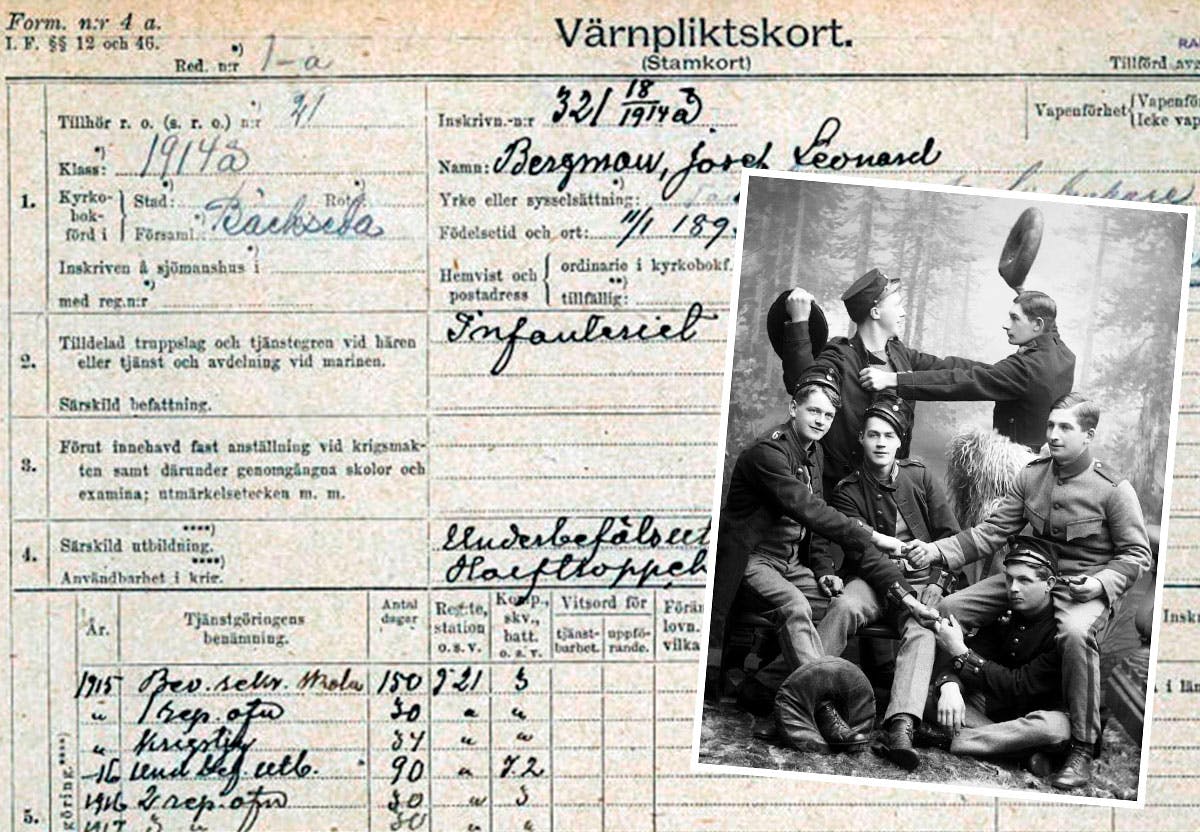 Form. n:r 4 a.
I. F. §§ 12 och 46.
Värnpliktskort.
(Stamkort)
Red. n:r *) 1-a
Tillförd avg
1.
Tillhör r. o. (s. r. o.) n:r *) 21
Klass: *) 1914 å
Kyrko-bok-förd i
Stad: *) Rote *)
Församl.: *) Bäckseda
Inskriven å sjömanshus i
med reg.n:r *)
Inskrivn.-n:r 321 18/1914 å
Namn: Bergman, Josef Leonard
Yrke eller sysselsättning: *)
Födelsetid och ort: 11/1 189
Hemvist och postadress
ordinarie i kyrkobokf.
tillfällig: **)
Vapenförhet
Vapenfö
Icke vap
2.
Tilldelad truppslag och tjänstegren vid hären
eller tjänst och avdelning vid marinen.
Särskild befattning.
Infanteriet
3.
Förut innehavd fast anställning vid krigsmak-
ten samt därunder genomgångna skolor och
examina; utmärkelsetecken m. m.
4.
Särskild utbildning. ****)
Användbarhet i krig. ****)
Underbefälsut
År.
Tjänstgöringens
benämning.
Antal
dagar
Reg:te,
station
o. s. v.
Komp.,
skv.,
batt.
o. s. v.
Vitsord för
tjänst-
barhet.
uppfö-
rande.
Förän
lovn.
vilka
Inskr
i län
5.
göring.****)
1915 Bev. sekr. skola 150 I 21 3
" 1 rep. ofn 30 " "
" 34 " "
-16 Und. bef. utb. 90 " 7.2
1916 2 rep. ofn 30 " 3
1917 3 " 30 " "